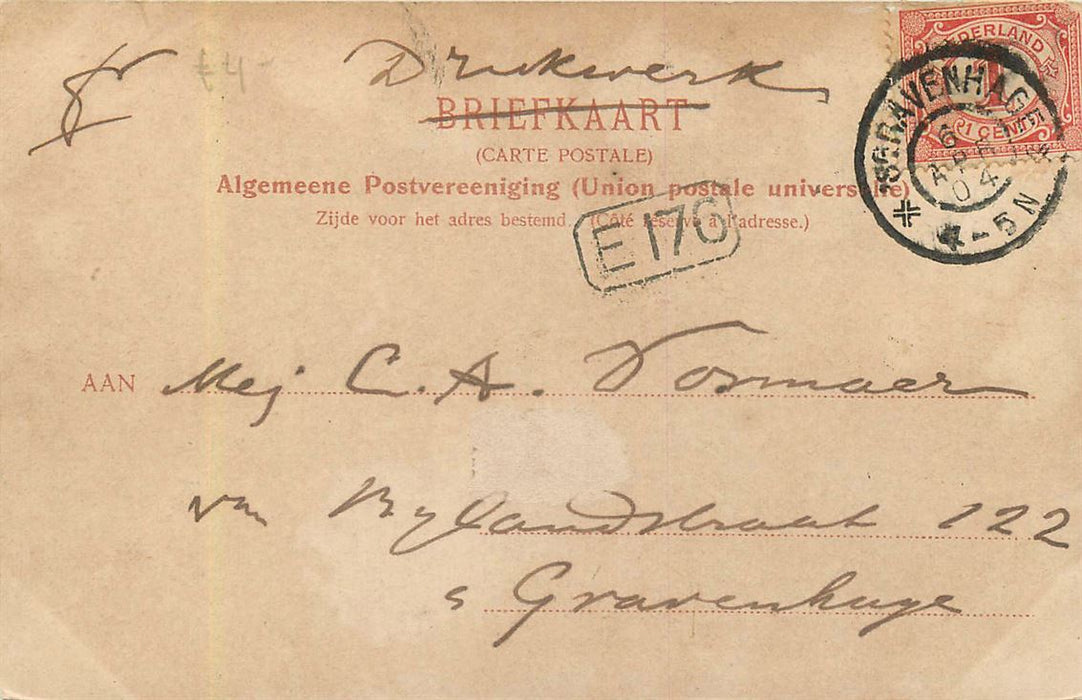 fr Drukwerk
£4-
NEDERLAND
1 CENT
BRIEFKAART
(CARTE POSTALE)
Algemeene Postvereeniging (Union postale universelle)
Zijde voor het adres bestemd. (Côté réservé à l'adresse.)
'SGRAVENHAGE
6 APR 04
4-5N
E 176
AAN Mej C. A. Vosmaer
van Bylandtstraat 122
s Gravenhage